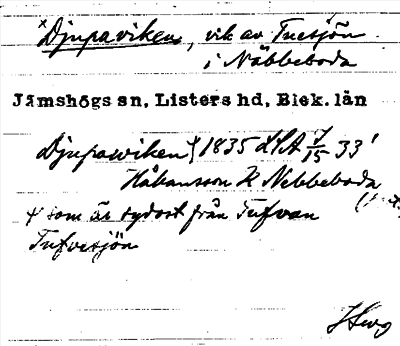 ×Djupaviken, vik av Tuesjön
i Näbbeboda
Jämshögs sn, Listers hd, Blek. län
Djupawiken 1835 LSA 7/15 33'
Håkansson K Nebbeboda
som är sydost från Tufvan
Tufvesjön